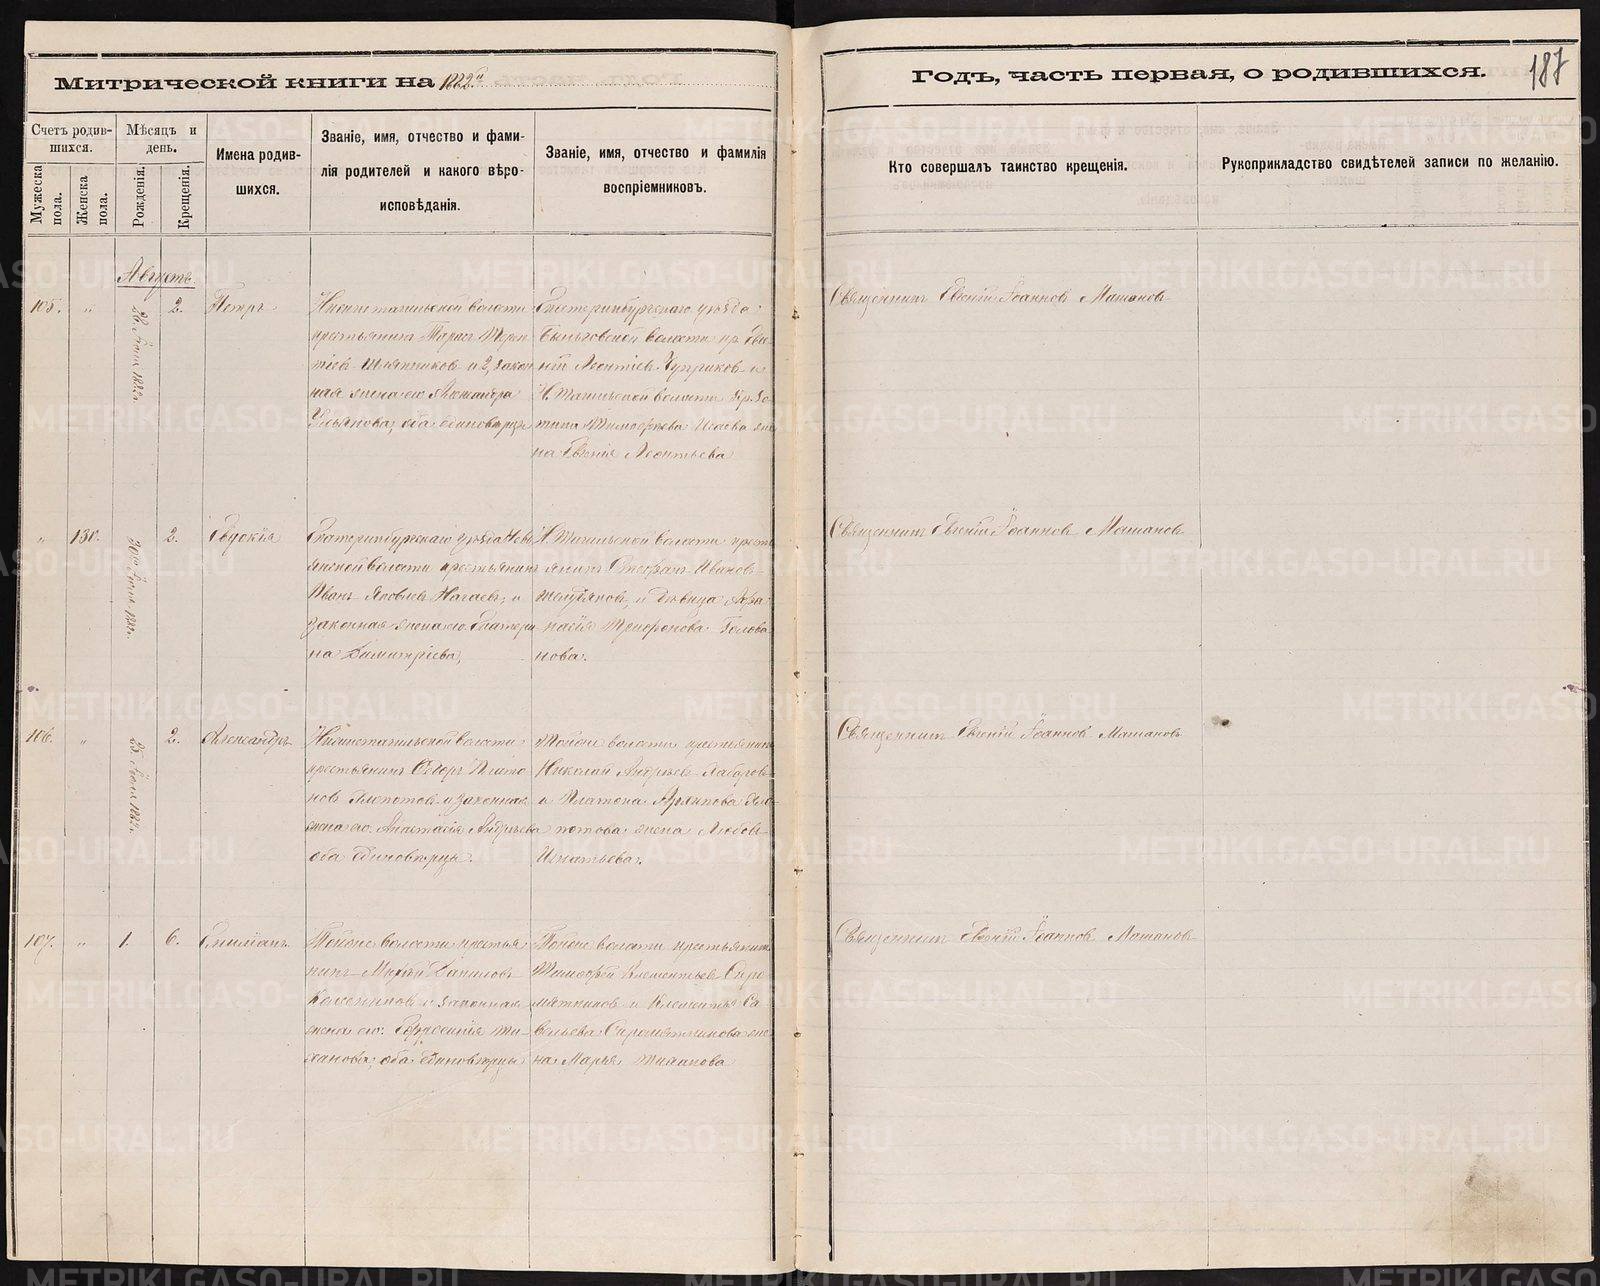 Митрической книги на 1882й
Годъ, часть первая, о родившихся.
187
Счетъ родив-
шихся.
Мужеска
пола.
Женска
пола.
Мѣсяцъ и
день.
Рожденія.
Крещенія.
Имена родив-
шихся.
Званіе, имя, отчество и фами-
лія родителей и какого вѣро-
исповѣданія.
Званіе, имя, отчество и фамилія
воспріемниковъ.
Кто совершалъ таинство крещенія.
Рукоприкладство свидѣтелей записи по желанію.
Августъ
105. " 2. Петръ
28 Іюля 1882г.
Нижнетагильской волости
крестьянинъ
и 2 закон
ная жена его Александра
Ульянова, оба единовѣрцы
Екатеринбургскаго уѣзда
волости кр. Евге
ній Леонтіевъ и
Н. Тагильской волости
Тимофѣева Исаева же
на Евгенія Леонтьева
Священникъ Евгеній Іоанновъ Машановъ
" 130. 2. Евдокія
30го Іюля 1882г.
Екатеринбургскаго уѣзда Невь
янской волости крестьянинъ
Иванъ Яковлевъ Нагаевъ, и
законная жена его Екатери
на Димитріева,
Н. Тагильской волости кресть
янинъ Стефанъ Ивановъ
и дѣвица Афа
насія Трифонова Голова
нова.
Священникъ Евгеній Іоанновъ Машановъ
106. " 2. Александръ
25 Іюля 1882г.
Нижнетагильской волости
крестьянинъ Ѳедоръ Плато
новъ и законная
жена его Анастасія Андреева
оба единовѣрцы.
Тойже волости крестьянинъ
Николай Андреевъ
и Платона
потова жена Любовь
Игнатьева.
Священникъ Евгеній Іоанновъ Машановъ
107. " 1. 6. Емиліанъ
Тойже волости крестья
нинъ Даниловъ
и законная
жена его Ефросинія Ти
ханова, оба единовѣрцы
Тойже волости крестьянинъ
Тимофей Клементьевъ Сыро
мятниковъ и Клементья Са
вельева Сыромятникова же
на Марья Тиханова
Священникъ Евгеній Іоанновъ Машановъ
METRIKI.GASO-URAL.RU